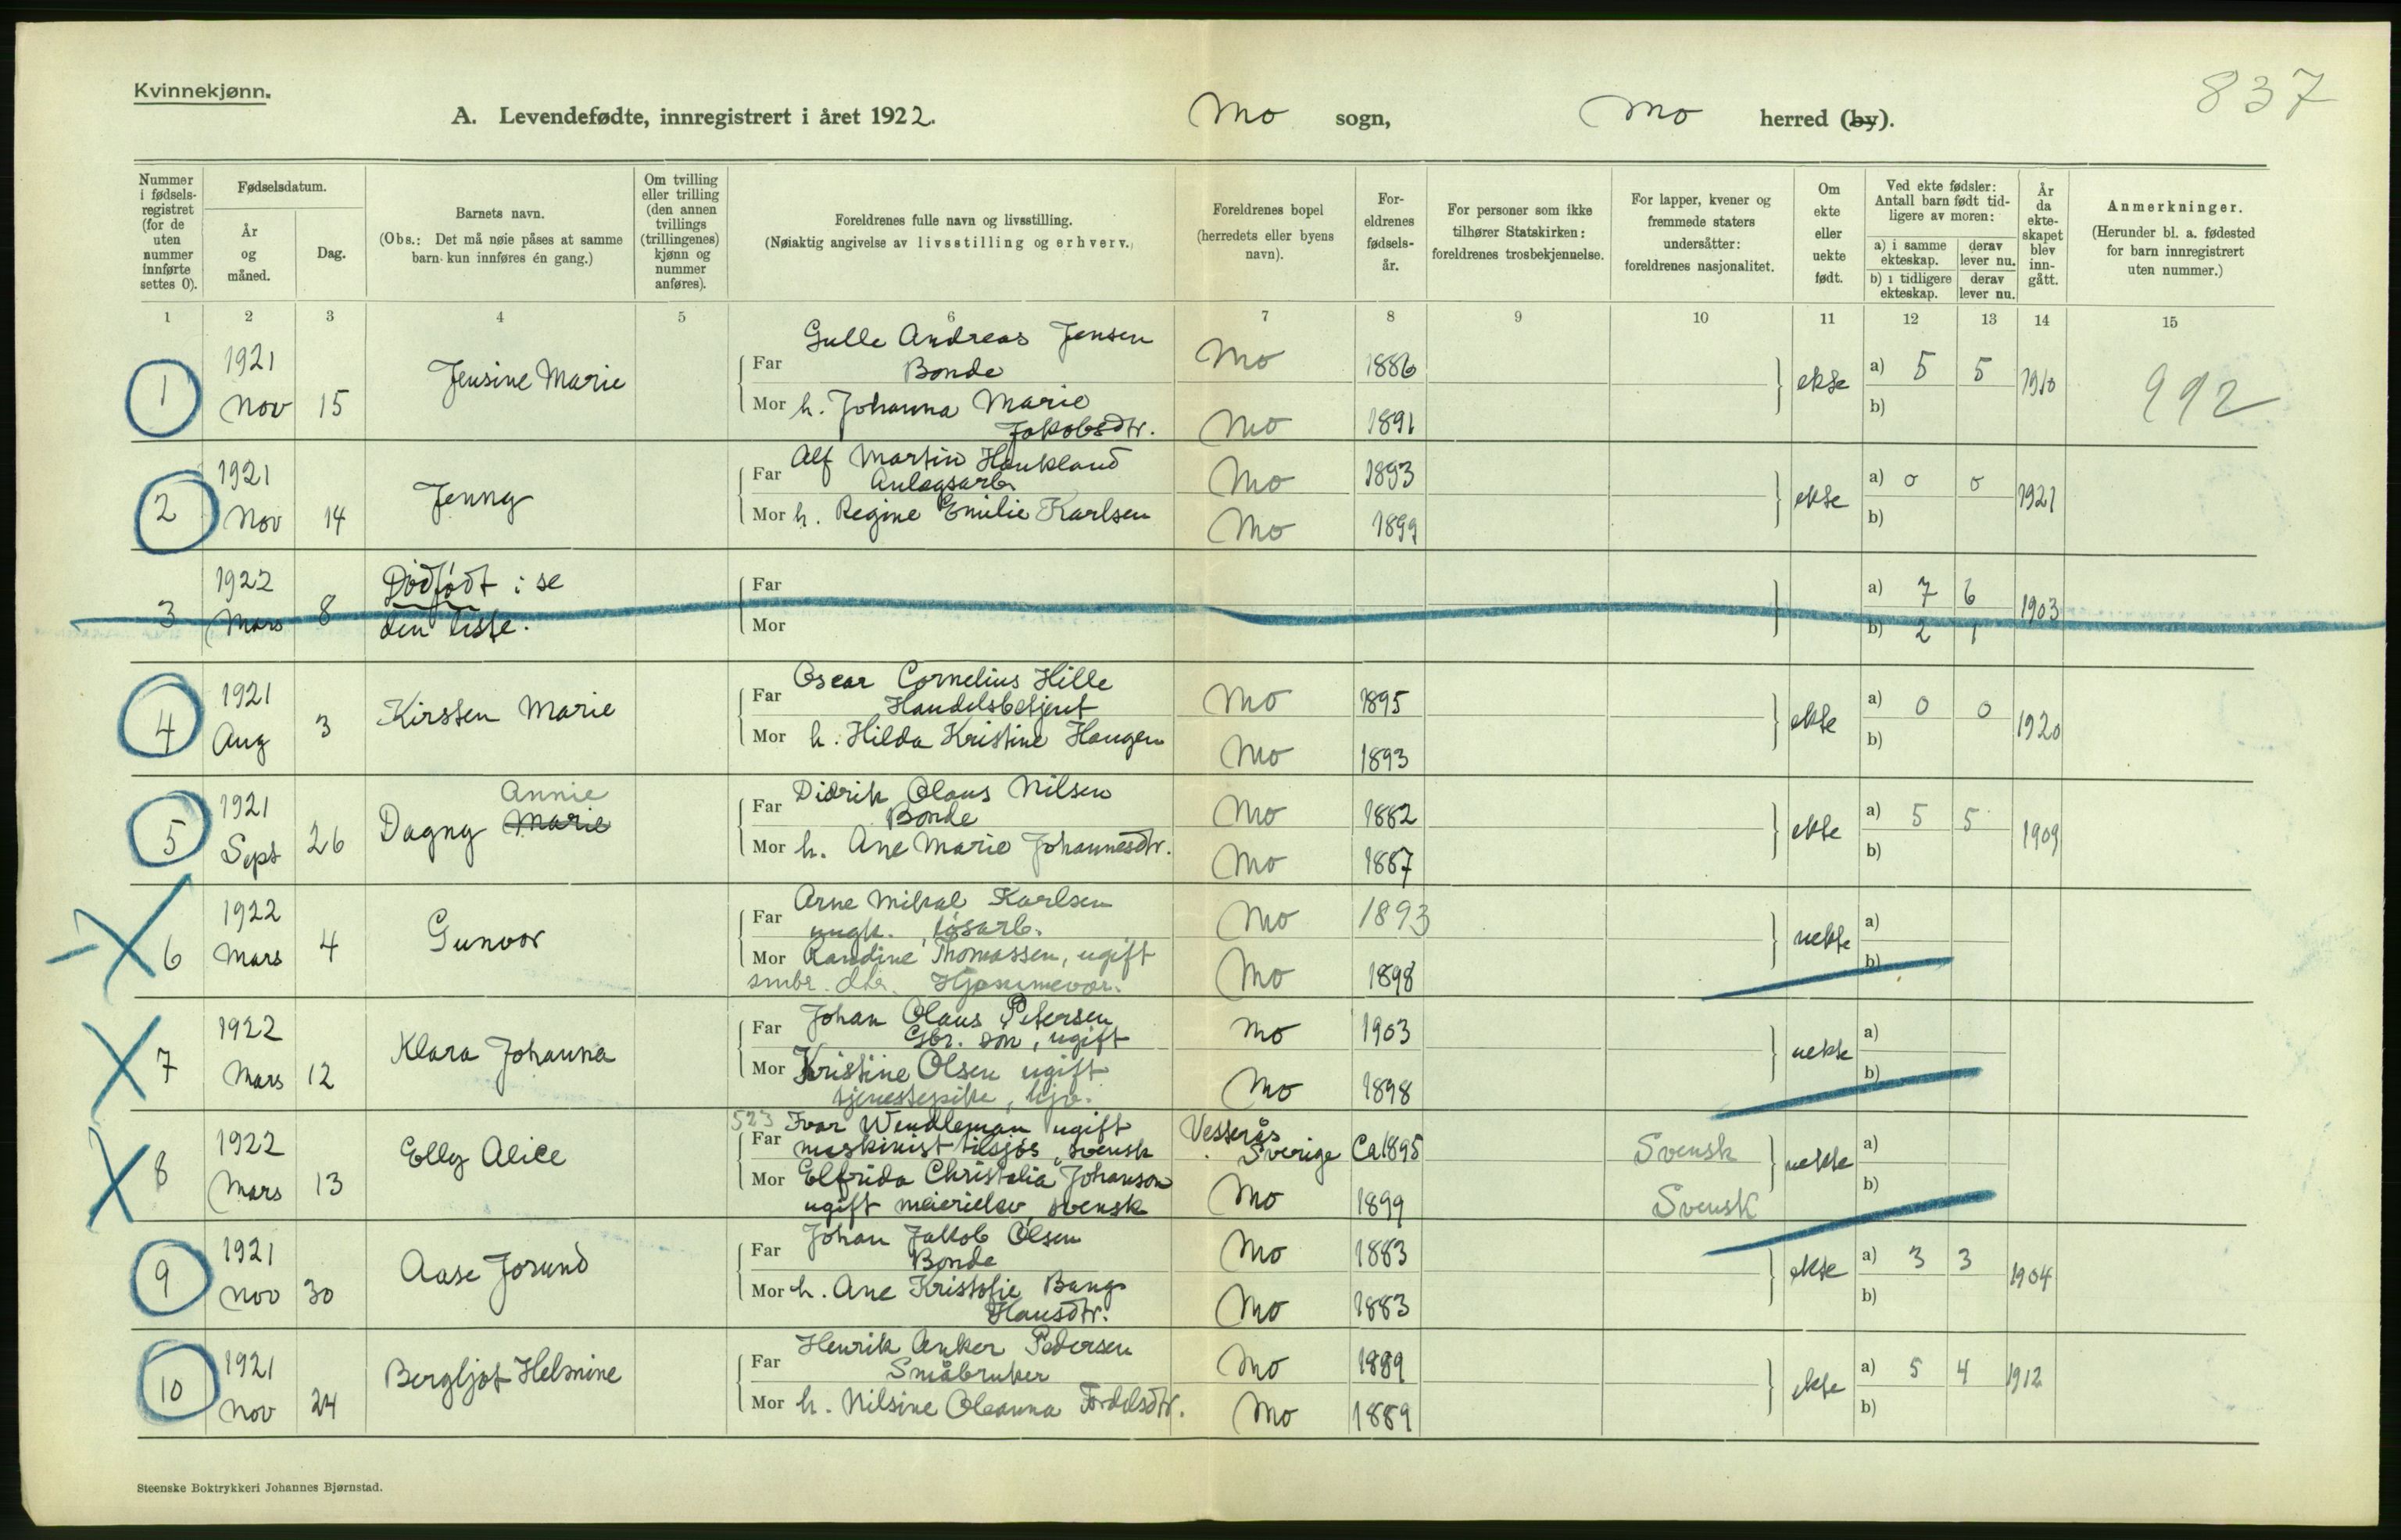 Kvinnekjønn.
837
A. Levendefødte, innregistrert i året 1922.
Mo sogn,
Mo herred (by).
Nummer i fødsels-registret (for de uten nummer innførte settes 0).
Fødselsdatum.
År og måned.
Dag.
Barnets navn.
(Obs.: Det må nøie påses at samme barn kun innføres én gang.)
Om tvilling eller trilling (den annen tvillings (trillingenes) kjønn og nummer anføres).
Foreldrenes fulle navn og livsstilling.
(Nøiaktig angivelse av livsstilling og erhverv.)
Foreldrenes bopel (herredets eller byens navn).
For-eldrenes fødsels-år.
For personer som ikke tilhører Statskirken: foreldrenes trosbekjennelse.
For lapper, kvener og fremmede staters undersåtter: foreldrenes nasjonalitet.
Om ekte eller uekte født.
Ved ekte fødsler: Antall barn født tid-ligere av moren:
a) i samme ekteskap.
derav lever nu.
b) i tidligere ekteskap.
derav lever nu.
År da ekte-skapet blev inn-gått.
Anmerkninger.
(Herunder bl. a. fødested for barn innregistrert uten nummer.)
1 2 3 4 5 6 7 8 9 10 11 12 13 14 15
1 1921 Nov 15 Jensine Marie
Far Gulle Andreas Jensen Bonde Mo 1886
Mor h. Johanna Marie Jakobsdtr. Mo 1891
ekte a) 5 5 b) 1910 992
2 1921 Nov 14 Jenny
Far Alf Martin Haukland Anlegsarb Mo 1893
Mor h. Regine Emilie Karlsen Mo 1899
ekte a) 0 0 b) 1921
3 1922 Mars 8 Dödfödt: se den liste.
Far
Mor
a) 7 6 b) 2 1 1903
4 1921 Aug 3 Kirsten Marie
Far Oscar Cornelius Hille Handelsbetjent Mo 1895
Mor h. Hilda Kristine Haugen Mo 1893
ekte a) 0 0 b) 1920
5 1921 Sept 26 Dagny Marie Annie
Far Didrik Olaus Nilsen Bonde Mo 1882
Mor h. Ane Marie Johannesdtr. Mo 1887
ekte a) 5 5 b) 1909
6 1922 Mars 4 Gunvor
Far Arne Mikal Karlsen ungk. løsarb. Mo 1893
Mor Randine Thomassen, ugift smbr. dtr. Hjemmevær. Mo 1898
uekte a) b)
7 1922 Mars 12 Klara Johanna
Far Johan Olaus Petersen Gbr. søn, ugift Mo 1903
Mor Kristine Olsen ugift tjenestepike, Mo 1898
uekte a) b)
8 1922 Mars 13 Elly Alice
523 Far Ivar Wendleman ugift maskinist tilsjøs, svensk Vesterås Sverige Ca 1895 Svensk
Mor Elfrida Christalia Johanson ugift meierielev, svensk Mo 1899 Svensk
uekte a) b)
9 1921 Nov 30 Aase Jorund
Far Johan Jakob Olsen Bonde Mo 1883
Mor h. Ane Kristofie Bang Hansdtr. Mo 1883
ekte a) 3 3 b) 1904
10 1921 Nov 24 Bergljot Helmine
Far Henrik Anker Pedersen Småbruker Mo 1889
Mor h. Nilsine Oleanna Tordelsdtr. Mo 1889
ekte a) 5 4 b) 1912
Steenske Boktrykkeri Johannes Bjørnstad.